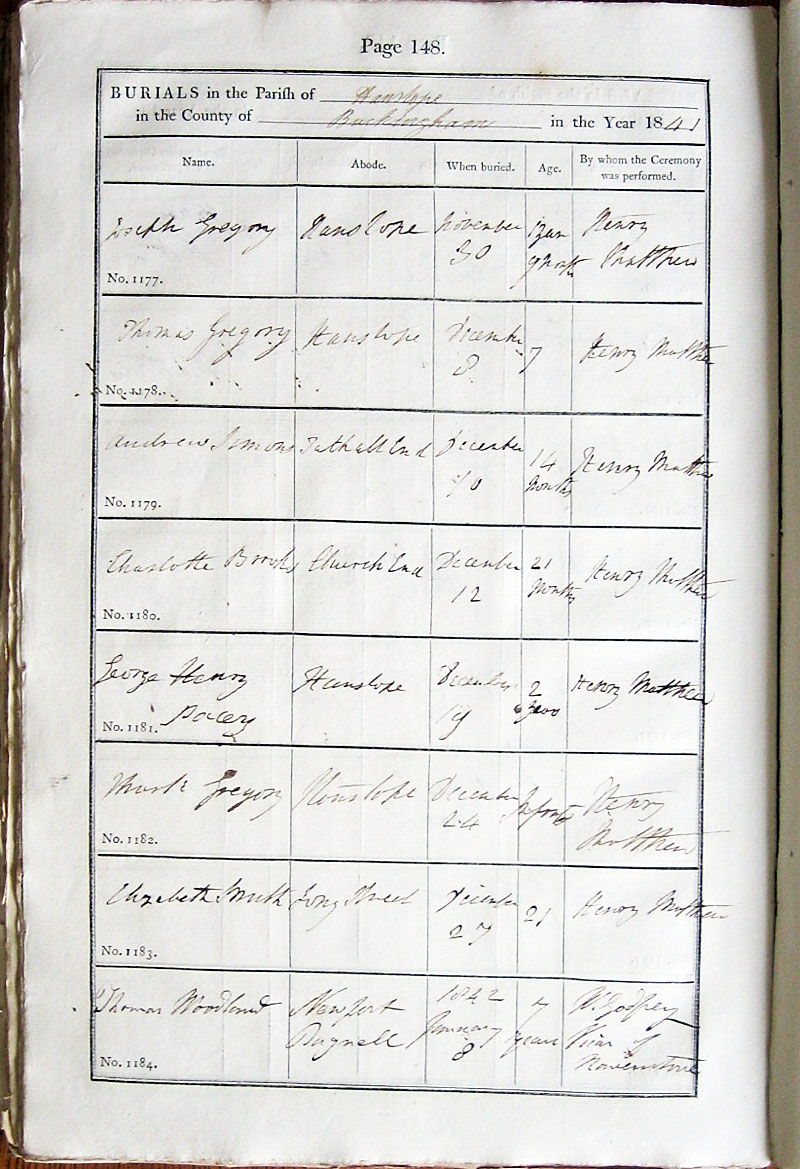 Page 148.
BURIALS in the Parish of Hanslope
in the County of Buckingham in the Year 1841
Name. Abode. When buried. Age. By whom the Ceremony was performed.
Joseph Gregory Hanslope November 30 1 Year 9 Months Henry Matthew
No. 1177.
Thomas Gregory Hanslope December 8 7 Henry Matthew
No. 1178.
Andrew Simons Tathall End December 10 14 Months Henry Matthew
No. 1179.
Charlotte Brooks Church End December 12 21 Months Henry Matthew
No. 1180.
George Henry Pacey Hanslope December 19 2 Henry Matthew
No. 1181.
Gregory Hanslope December 24 Infant Henry Matthew
No. 1182.
Elizabeth Smith Long Street December 27 21 Henry Matthew
No. 1183.
Thomas Woodland Newport Pagnell 1842 January 8 7 years W. Godfrey Vicar of Ravenstone
No. 1184.